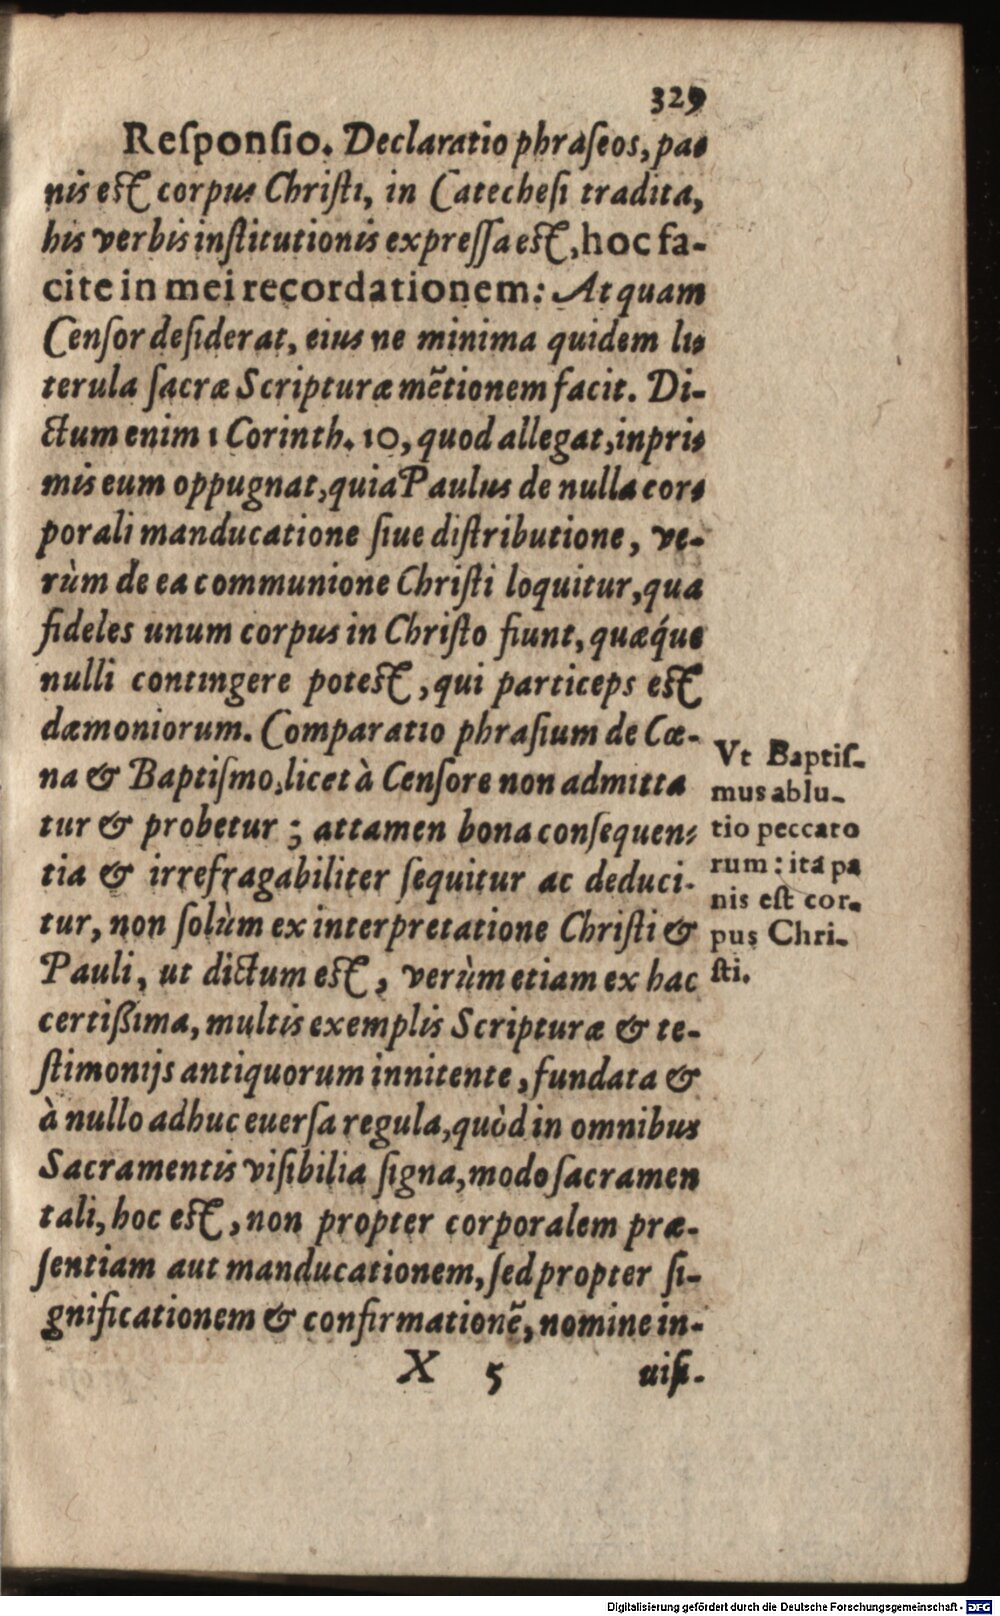 329
Reſponſio. Declaratio phraſeos, pa-
nis eſt corpus Chriſti, in Catecheſi tradita,
his verbis inſtitutionis expreſſa eſt, hoc fa-
cite in mei recordationem: At quam
Cenſor deſiderat, eius ne minima quidem li-
terula ſacræ Scripturæ mẽtionem facit. Di-
ctum enim 1 Corinth. 10, quod allegat, inpri-
mis eum oppugnat, quia Paulus de nulla cor-
porali manducatione ſiue diſtributione, ve-
rùm de ea communione Chriſti loquitur, qua
fideles unum corpus in Chriſto fiunt, quæq́ue
nulli contingere poteſt, qui particeps eſt
dæmoniorum. Comparatio phraſium de Cœ-
na & Baptiſmo, licet à Cenſore non admitta
tur & probetur; attamen bona conſequen-
tia & irrefragabiliter ſequitur ac deduci-
tur, non ſolùm ex interpretatione Chriſti &
Pauli, ut dictum eſt, verùm etiam ex hac
certißima, multis exemplis Scripturæ & te-
ſtimonijs antiquorum innitente, fundata &
à nullo adhuc euerſa regula, quòd in omnibus
Sacramentis viſibilia ſigna, modo ſacramen
tali, hoc eſt, non propter corporalem præ-
ſentiam aut manducationem, ſed propter ſi-
gnificationem & confirmationẽ, nomine in-
X 5 uiſi-
Vt Baptiſ-
mus ablu-
tio peccato
rum: ita pa
nis eſt cor-
pus Chri-
ſti.
Digitalisierung gefördert durch die Deutsche Forschungsgemeinschaft - DFG